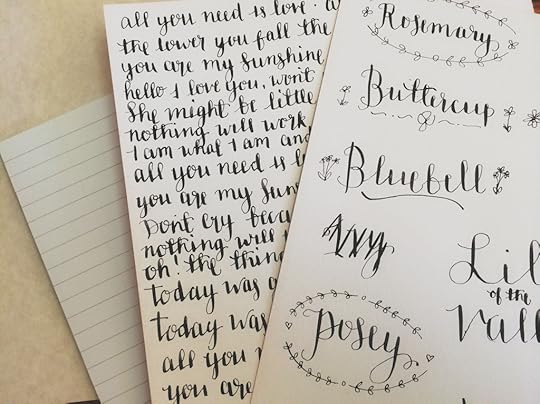 all you need is love.
the lower you fall the
you are my sunshine
hello I love you, won't
She might be little
nothing will work
I am what I am and
all you need is
you are my
Don't cry
nothing will
oh! the
today was
today was
all you
you are
Rosemary
Buttercup
Bluebell
Posey
Lil
of the
Vall